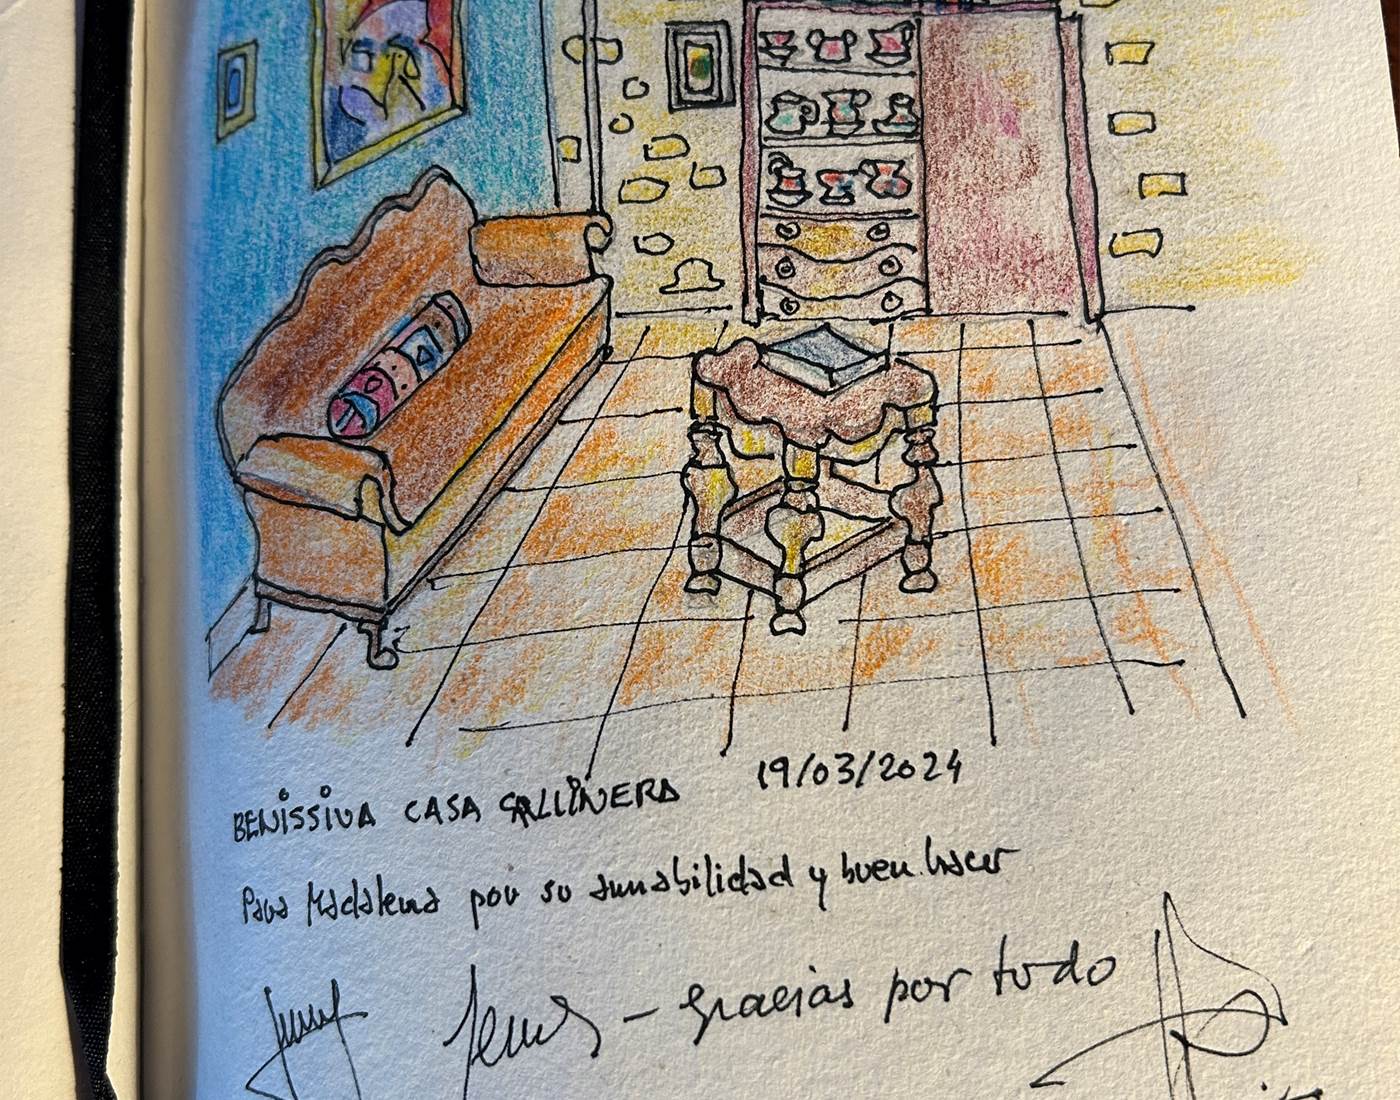 BENISSIVA CASA GALLINERA 19/03/2024
Para Madalena por su amabilidad y buen hacer
– gracias por todo